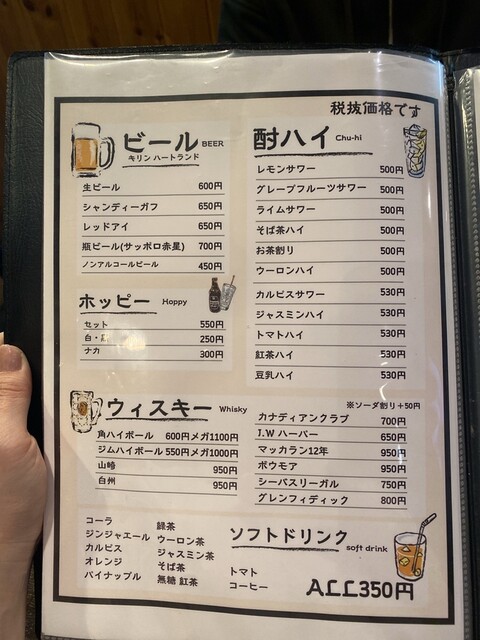 税抜価格です
ビール BEER
キリン ハートランド
生ビール 600円
シャンディーガフ 650円
レッドアイ 650円
瓶ビール(サッポロ赤星) 700円
ノンアルコールビール 450円
ホッピー Hoppy
セット 550円
白・黒 250円
ナカ 300円
酎ハイ Chu-hi
レモンサワー 500円
グレープフルーツサワー 500円
ライムサワー 500円
そば茶ハイ 500円
お茶割り 500円
ウーロンハイ 500円
カルピスサワー 530円
ジャスミンハイ 530円
トマトハイ 530円
紅茶ハイ 530円
豆乳ハイ 530円
ウィスキー Whisky
角ハイボール 600円メガ1100円
ジムハイボール 550円メガ1000円
山崎 950円
白州 950円
※ソーダ割り+50円
カナディアンクラブ 700円
I.W ハーパー 650円
マッカラン12年 950円
ボウモア 950円
シーバスリーガル 750円
グレンフィディック 800円
ソフトドリンク soft drink
コーラ
ジンジャエール
カルピス
オレンジ
パイナップル
緑茶
ウーロン茶
ジャスミン茶
そば茶
無糖 紅茶
トマト
コーヒー
ALL350円